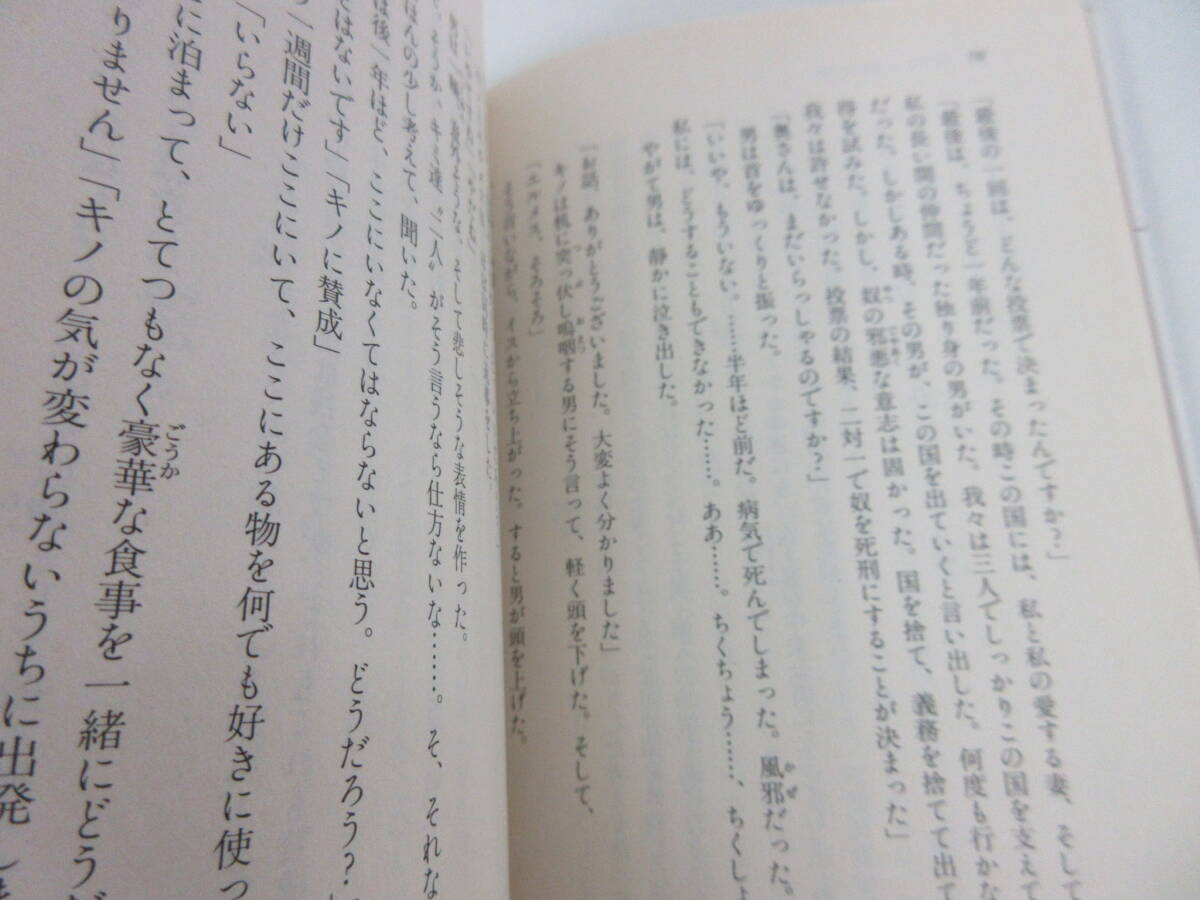 「最後の一回は、どんな投票で決まったんですか?」
「最後は、ちょうど一年前だった。その時この国には、私と私の愛する妻、そして
私の長い間の仲間だった独り身の男がいた。我々は三人でしっかりこの国を支えて
だった。しかしある時、その男が、この国を出ていくと言い出した。何度も行かな
得を試みた。しかし、奴の邪悪な意志は固かった。国を捨て、義務を捨てて出て
我々は許せなかった。投票の結果、二対一で奴を死刑にすることが決まった」
「奥さんは、まだいらっしゃるのですか?」
男は首をゆっくりと振った。
「いいや、もういない。……半年ほど前だ。病気で死んでしまった。風邪だった。
私には、どうすることもできなかった……。ああ……。ちくちょう……、ちくしょ
やがて男は、静かに泣き出した。
「お話、ありがとうございました。大変よく分かりました」
キノは机に突っ伏し嗚咽する男にそう言って、軽く頭を下げた。そして、
「エルメス、そろそろ」
そう言いながら、イスから立ち上がった。すると男が頭を上げた。
そして悲しそうな表情を作った。
そうか、キミ達〝二人〟がそう言うなら仕方ないな……。そ、それな
ほんの少し考えて、聞いた。
は後一年ほど、ここにいなくてはならないと思う。どうだろう?
ではないです」「キノに賛成」
一週間だけここにいて、ここにある物を何でも好きに使っ
「いらない」
に泊まって、とてつもなく豪華な食事を一緒にどうだ
りません」「キノの気が変わらないうちに出発し